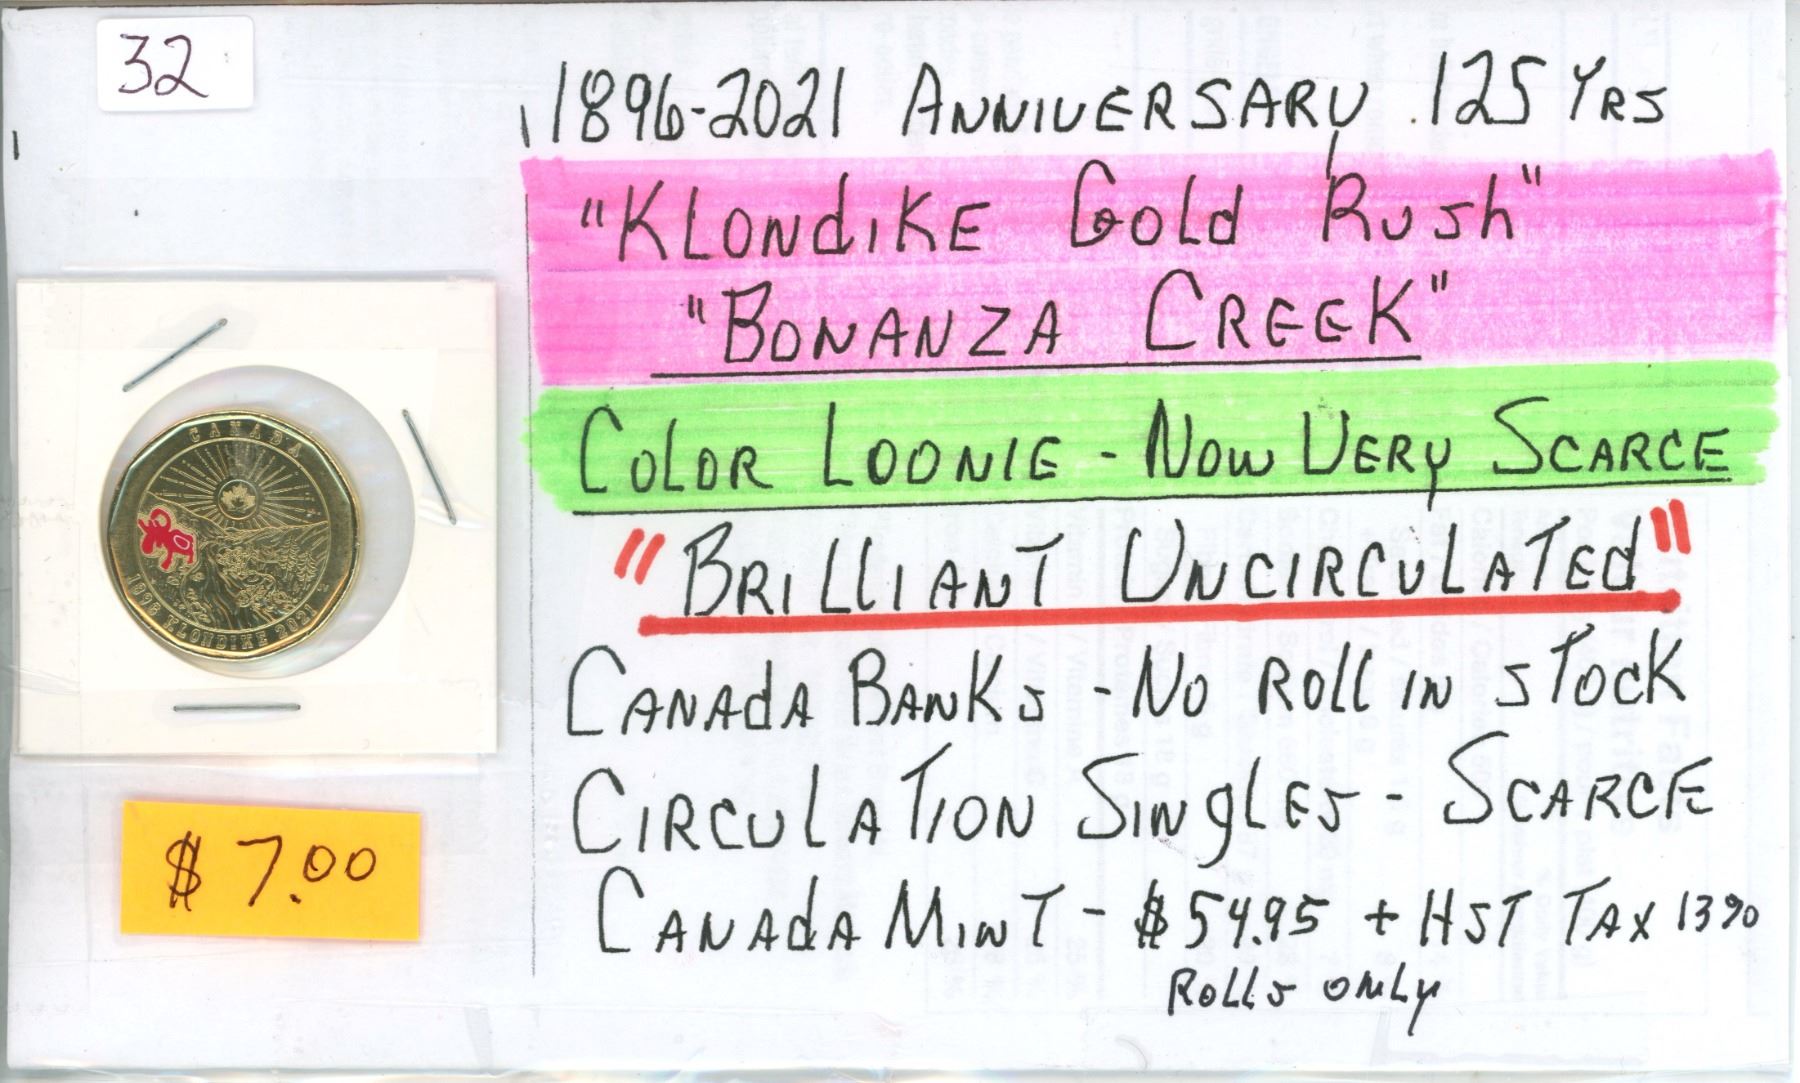 32
1896-2021 ANNIVERSARY 125 YRS
"KLONdIKE GOLd RUSh"
"BONANZA CREEK"
COLOR LOONIE - NOW VERY SCARCE
"BRILLIANT UNCIRCULATEd"
CANAdA BANKS - NO ROLL IN STOCK
CIRCULATION SINgLES - SCARCE
CANAdA MINT - $54.95 + HST TAX 13%
ROLLS ONLY
$7.00
CANADA
1896 KLONDIKE 2021